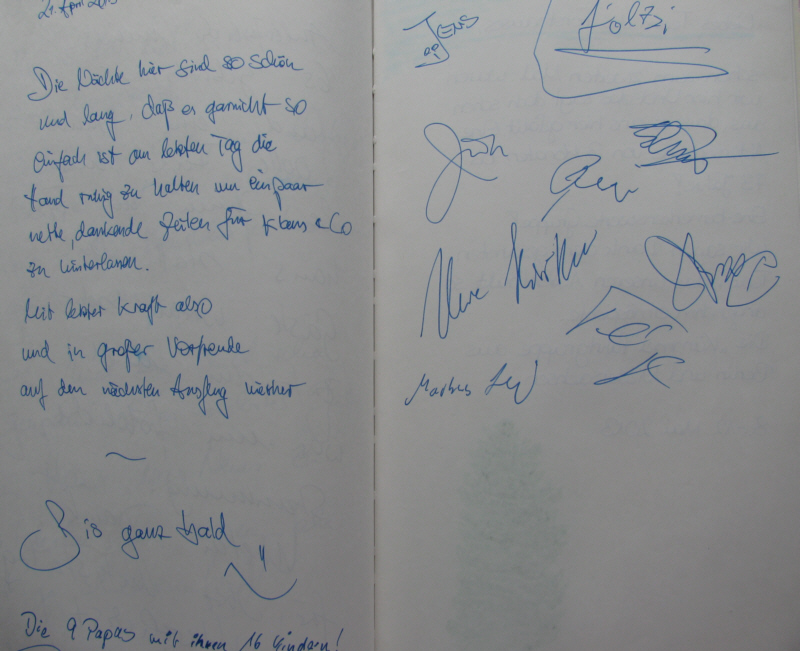 21. April 2013
Die Nächte hier sind so schön
und lang, daß es garnicht so
einfach ist am letzten Tag die
Hand ruhig zu halten um ein paar
nette, dankende Zeilen für Klaus & Co
zu hinterlassen.
Mit letzter Kraft also
und in großer Vorfreude
auf den nächsten Ausflug hierher
~
Bis ganz bald
Die 9 Papas mit ihren 16 Kindern!
JENS
Jolzi
Uwe
Markus